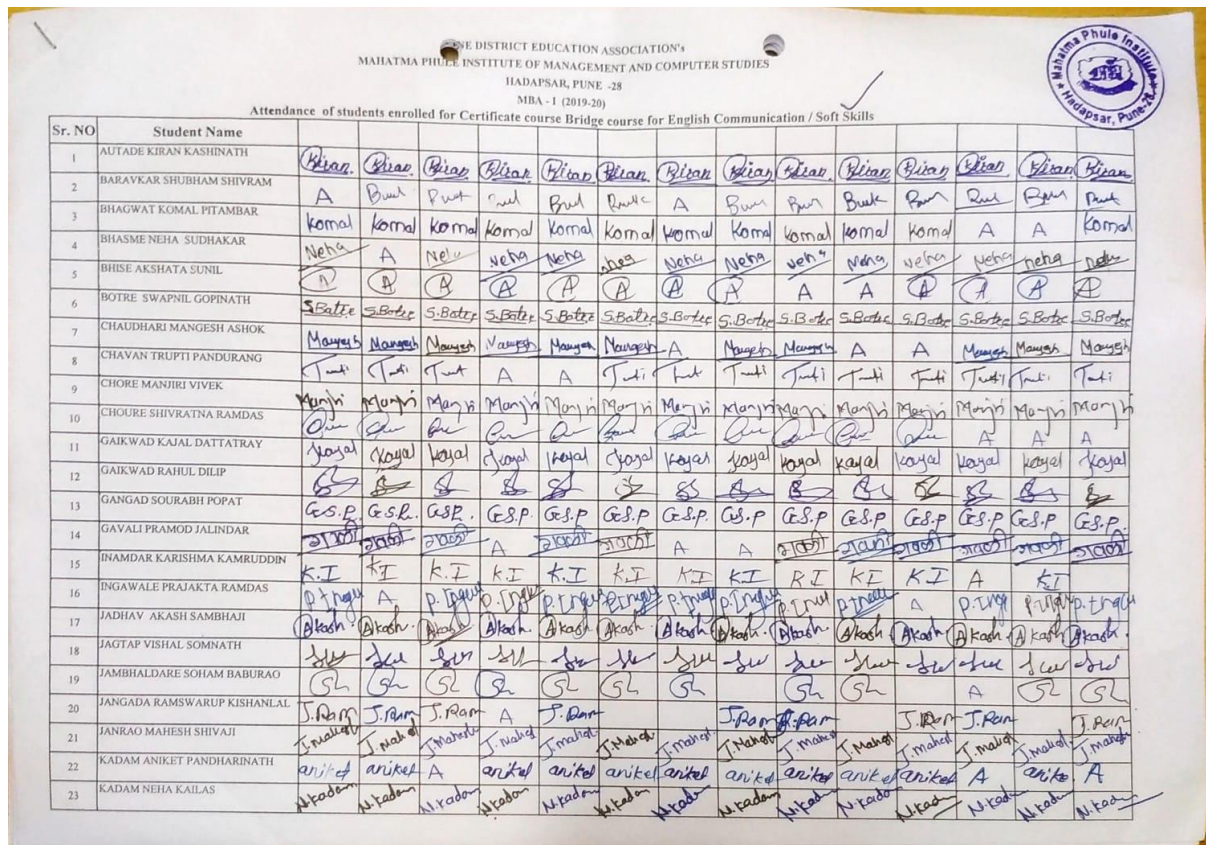 NE DISTRICT EDUCATION ASSOCIATION's
MAHATMA PHULE INSTITUTE OF MANAGEMENT AND COMPUTER STUDIES
HADAPSAR, PUNE -28
MBA - I (2019-20)
Attendance of students enrolled for Certificate course Bridge course for English Communication / Soft Skills
Mahatma Phule Institute
Hadapsar, Pune-28
Sr. NO Student Name
1 AUTADE KIRAN KASHINATH Kiran Kiran Kiran Kiran Kiran Kiran Kiran Kiran Kiran Kiran Kiran Kiran Kiran Kiran
2 BARAVKAR SHUBHAM SHIVRAM A A
3 BHAGWAT KOMAL PITAMBAR Komal Komal Komal Komal Komal Komal Komal Komal Komal Komal Komal A A Komal
4 BHASME NEHA SUDHAKAR Neha A Neha Neha Neha Neha Neha Neha Neha Neha Neha
5 BHISE AKSHATA SUNIL A A A A A A A A A A A A A A
6 BOTRE SWAPNIL GOPINATH S.Botre S.Botre S.Botre S.Botre S.Botre S.Botre S.Botre S.Botre S.Botre S.Botre S.Botre S.Botre S.Botre S.Botre
7 CHAUDHARI MANGESH ASHOK Mangesh Mangesh Mangesh Mangesh Mangesh Mangesh A Mangesh Mangesh A A Mangesh Mangesh Mangesh
8 CHAVAN TRUPTI PANDURANG A A
9 CHORE MANJIRI VIVEK Manjri Manjri Manjri Manjri Manjri Manjri Manjri Manjri Manjri Manjri Manjri Manjri Manjri Manjri
10 CHOURE SHIVRATNA RAMDAS A A A
11 GAIKWAD KAJAL DATTATRAY Kajal Kajal Kajal Kajal Kajal Kajal Kajal Kajal Kajal Kajal Kajal Kajal Kajal Kajal
12 GAIKWAD RAHUL DILIP
13 GANGAD SOURABH POPAT G.S.P. G.S.P. G.S.P. G.S.P. G.S.P G.S.P G.S.P. G.S.P. G.S.P G.S.P G.S.P G.S.P G.S.P. G.S.P.
14 GAVALI PRAMOD JALINDAR गवळी गवळी गवळी A गवळी गवळी A A गवळी गवळी गवळी गवळी गवळी गवळी
15 INAMDAR KARISHMA KAMRUDDIN K.I K.I K.I K.I K.I K.I K.I K.I K.I K.I K.I A K.I
16 INGAWALE PRAJAKTA RAMDAS A A
17 JADHAV AKASH SAMBHAJI Akash. Akash. Akash Akash. Akash Akash. Akash Akash. Akash. Akash Akash Akash Akash Akash.
18 JAGTAP VISHAL SOMNATH
19 JAMBHALDARE SOHAM BABURAO A
20 JANGADA RAMSWARUP KISHANLAL J.Ram J.Ram J.Ram A J.Ram J.Ram J.Ram J.Ram J.Ram J.Ram
21 JANRAO MAHESH SHIVAJI
22 KADAM ANIKET PANDHARINATH aniket aniket A aniket aniket aniket aniket aniket aniket aniket aniket A aniket A
23 KADAM NEHA KAILAS N.kadam N.kadam N.kadam N.kadam N.kadam N.kadam N.kadam N.kadam N.kadam N.kadam N.kadam N.kadam N.kadam N.kadam